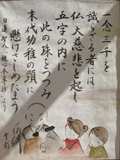 一念三千を
識らざる者には
仏大慈悲を起し
五字の内に
此の珠をつつみ
末代幼稚の頚に
懸けさしめたまう
日蓮聖人